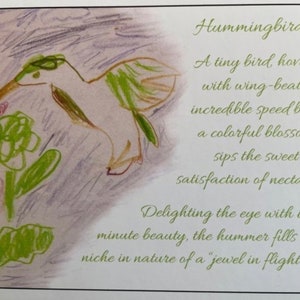 Hummingbird
A tiny bird, hov
with wing-bea
incredible speed b
a colorful blosso
sips the sweet
satisfaction of necta
Delighting the eye with
minute beauty, the hummer fills
niche in nature of a "jewel in flight